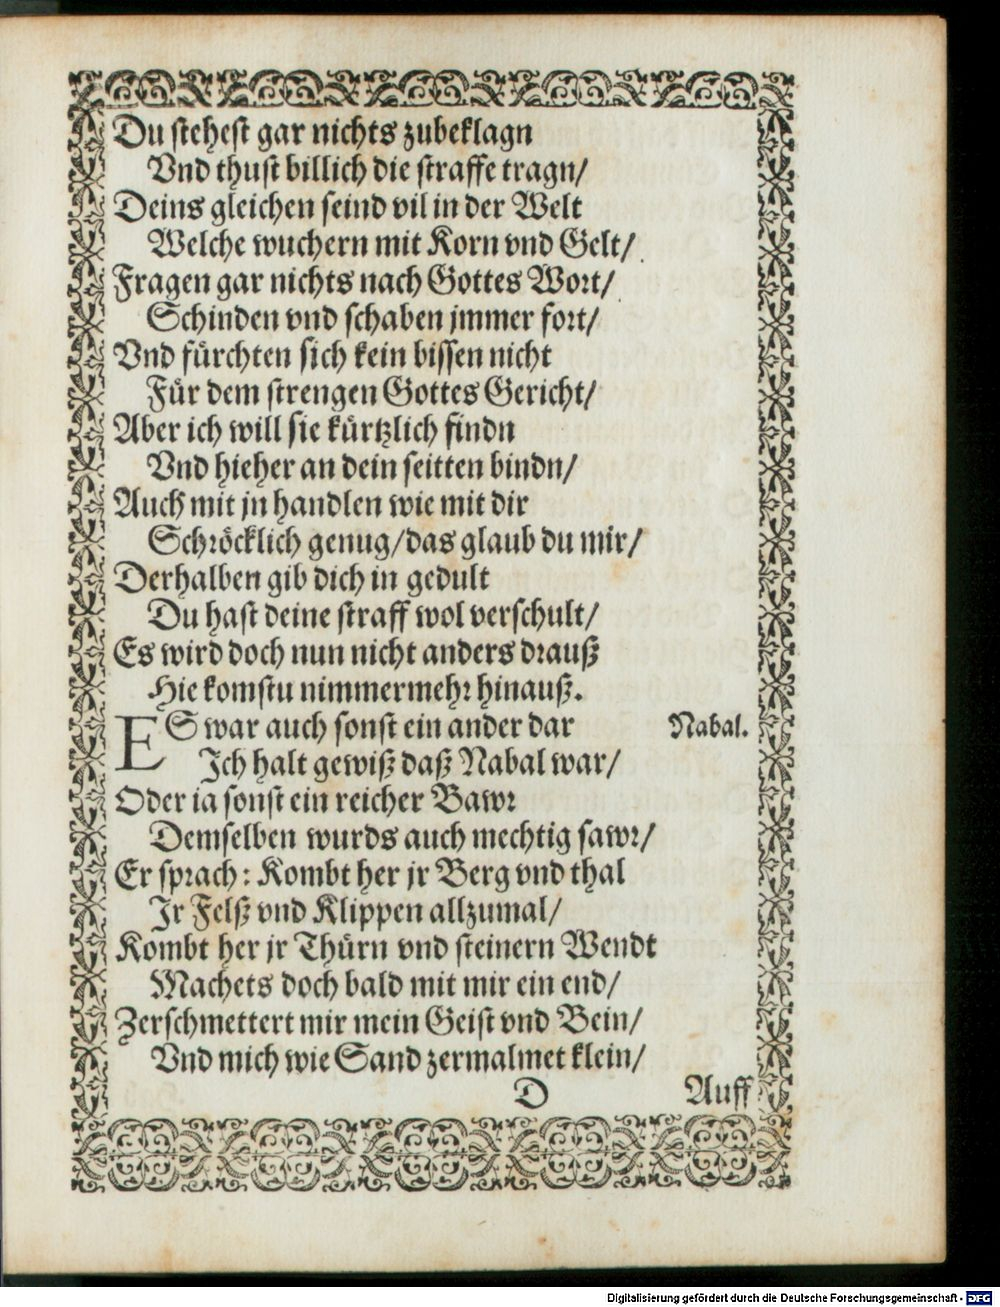 Du stehest gar nichts zubeklagn
Vnd thust billich die straffe tragn/
Deins gleichen seind vil in der Welt
Welche wuchern mit Korn vnd Gelt/
Fragen gar nichts nach Gottes Wort/
Schinden vnd schaben jmmer fort/
Vnd fürchten sich kein bissen nicht
Für dem strengen Gottes Gericht/
Aber ich will sie kürtzlich findn
Vnd hieher an dein seitten bindn/
Auch mit jn handlen wie mit dir
Schröcklich genug/das glaub du mir/
Derhalben gib dich in gedult
Du hast deine straff wol verschult/
Es wird doch nun nicht anders drauß
Hie komstu nimmermehr hinauß.
ES war auch sonst ein ander dar Nabal.
Ich halt gewiß daß Nabal war/
Oder ia sonst ein reicher Bawr
Demselben wurds auch mechtig sawr/
Er sprach: Kombt her jr Berg vnd thal
Jr Felß vnd Klippen allzumal/
Kombt her jr Thürn vnd steinern Wendt
Machets doch bald mit mir ein end/
Zerschmettert mir mein Geist vnd Bein/
Vnd mich wie Sand zermalmet klein/
D Auff
Digitalisierung gefördert durch die Deutsche Forschungsgemeinschaft - DFG